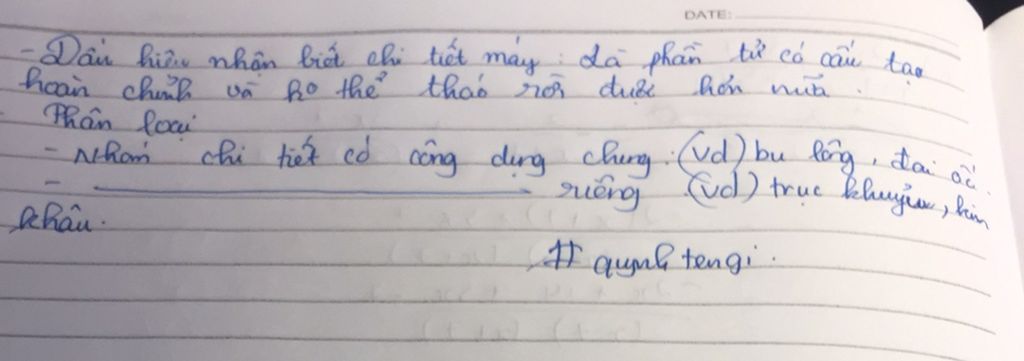 DATE:
- Dấu hiệu nhận biết chi tiết máy : Là phần tử có cấu tạo
hoàn chỉnh và ko thể tháo rời được hơn nữa .
Phân loại
- Nhóm chi tiết có công dụng chung : (vd) bu lông, đai ốc.
- ———————— riêng (vd) trục khuỷu, kim
khâu.
# quynh tengi .